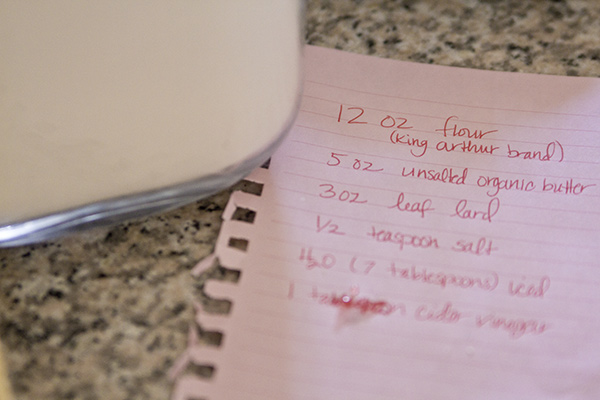 12 oz flour
(King arthur brand)
5 oz unsalted organic butter
3oz leaf lard
1/2 teaspoon salt
H2O (7 tablespoons) iced
1 cider vinegar